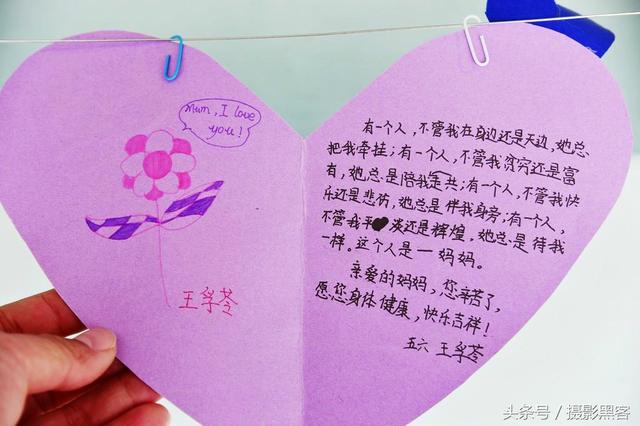 Mum, I love
you!
王孚苓
有一个人,不管我在身边还是天边,她总
把我牵挂;有一个人,不管我贫穷还是富
有,她总是陪我共;有一个人,不管我快
乐还是悲伤,她总是伴我身旁;有一个人,
不管我平淡还是辉煌,她总是待我
一样。这个人是一妈妈。
亲爱的妈妈,您辛苦了,
愿您身体健康,快乐吉祥!
五六 王孚苓
头条号/摄影黑客